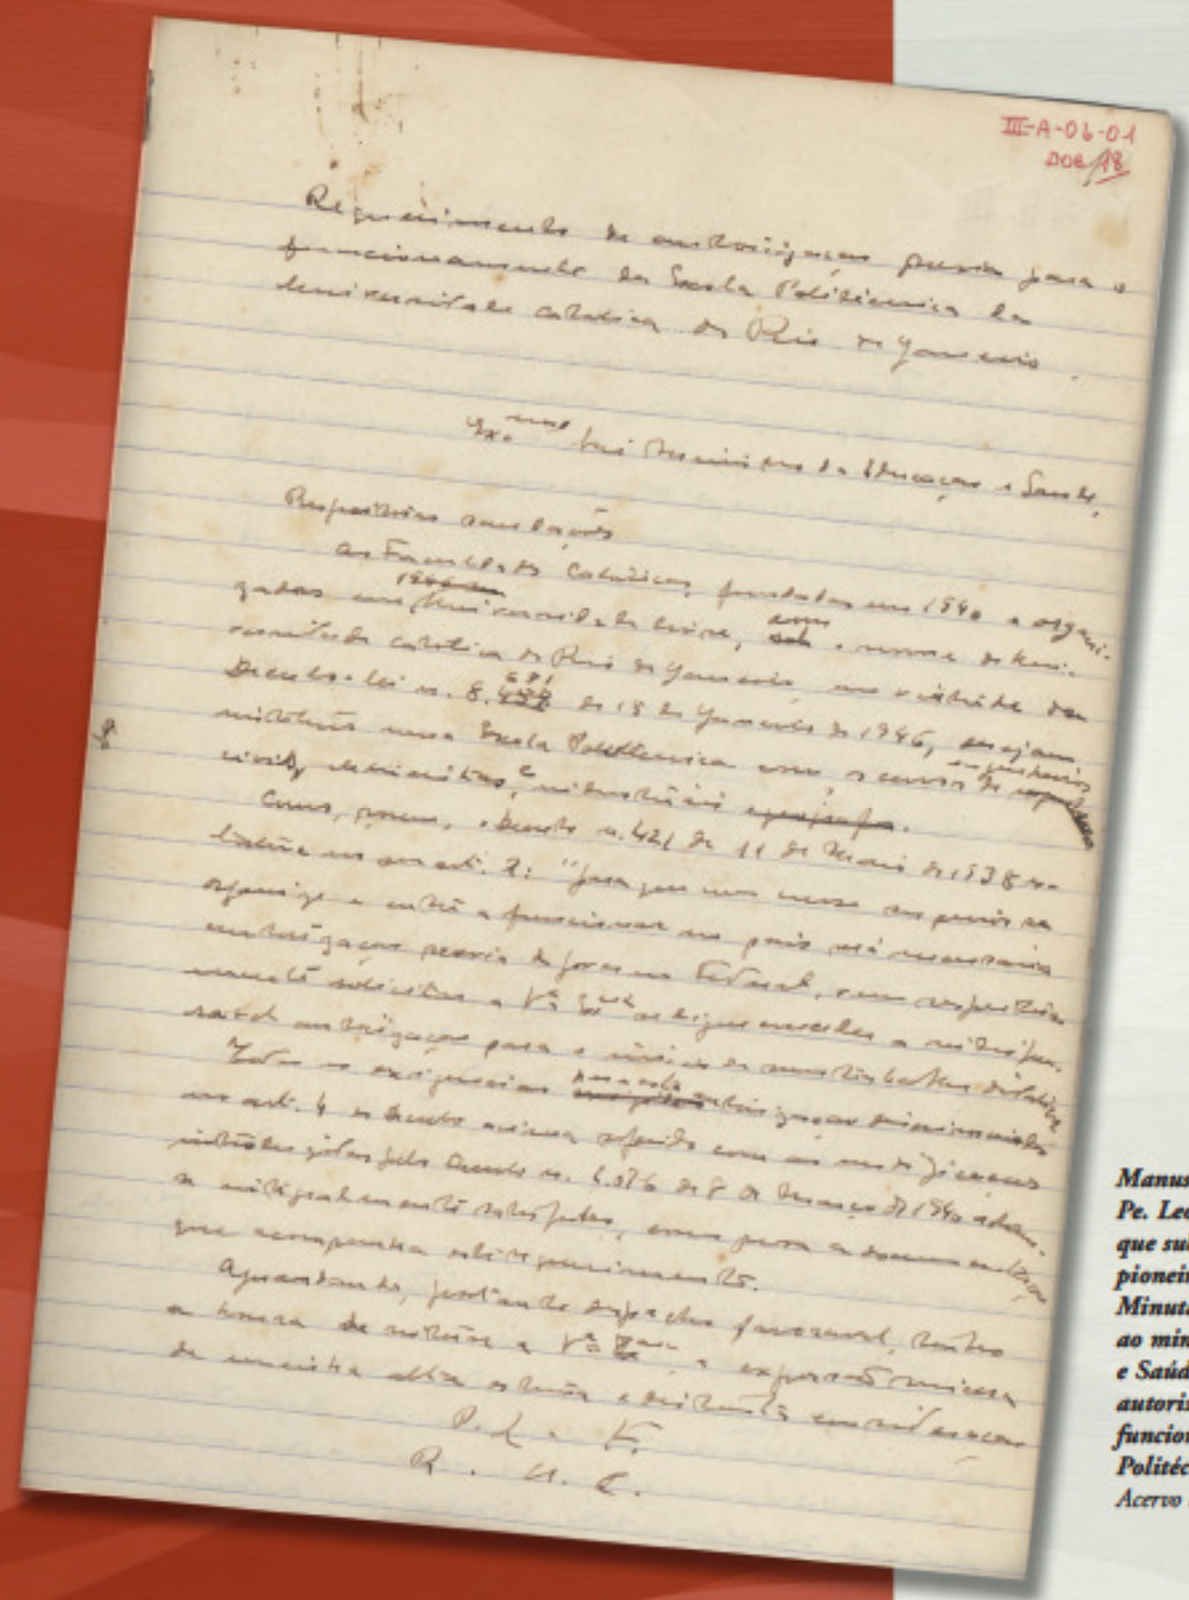 III-A-06-01
DOC/18
Requerimento de autorização previa para o
funcionamento da Escola Politécnica da
Universidade Catolica do Rio de Janeiro.
Exmo Snr Ministro da Educação e Saude,
Respeitosas saudações
As Faculdades Catolicas, fundadas em 1940 e organi-
zadas em Universidade livre, com o nome de Uni-
versidade Catolica do Rio de Janeiro, em virtude do
Decreto-lei n. 8.681 de 15 de Janeiro de 1946, desejam
instituir uma Escola Politecnica com os cursos de engenheiros
civis, e industriais
Como, porem, o Decreto n. 421 de 11 de Maio de 1938
no art. 2: "para que um curso superior se
organize e entre a funcionar no pais será necessaria
autorização previa do governo Federal, vem respeitosa-
mente solicitar a V. Excia se digne conceder a
autorização para o inicio de
Todas as exigencias para esta autorização
no art. 4 do Decreto acima referido com as modificações
introduzidas pelo Decreto n. 2.076 de 8 de Março de 1940
integralmente satisfeitas, como prova a documentação
que acompanha este requerimento.
Aguardando, portanto despacho favoravel, tenho
a honra de reiterar a V. Excia a expressão sincera
de minha alta estima e distinta consideração
P. L. F.
R. U. C.
Manus
Pe. Leo
que su
pionei
Minut
ao min
e Saúd
autori
funcion
Politéc
Acervo